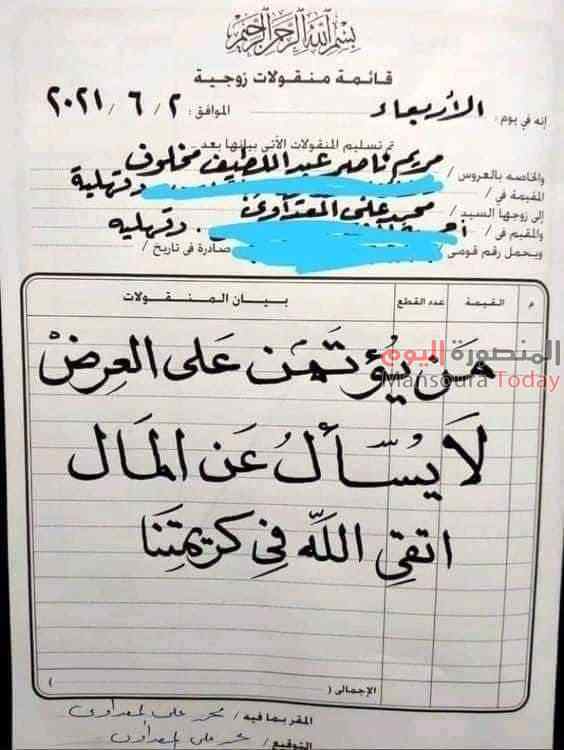 بسم الله الرحمن الرحيم
قائمة منقولات زوجية
إنه في يوم: الأربعاء الموافق: ٢ / ٦ / ٢٠٢١
تم تسليم المنقولات الآتى بيانها بعد
والخاصه بالعروس / مريم ناصر عبد اللطيف مخلوف
المقيمة في / دقهلية
إلى زوجها السيد / محمد على المعداوى
والمقيم في / دقهليه
ويحمل رقم قومى صادرة في تاريخ /
م القيمة عدد القطع بيان المنقولات
المنصورة اليوم
Mansoura Today
مَن يُؤتَمَن عَلى العِرضْ
لَا يُسْأَلُ عَن المَال
اتقِى اللَّه فِى كَرِيمَتِنَا
الإجمالى ( )
المقر بما فيه / محمد على المعداوى
التوقيع / محمد على المعداوى